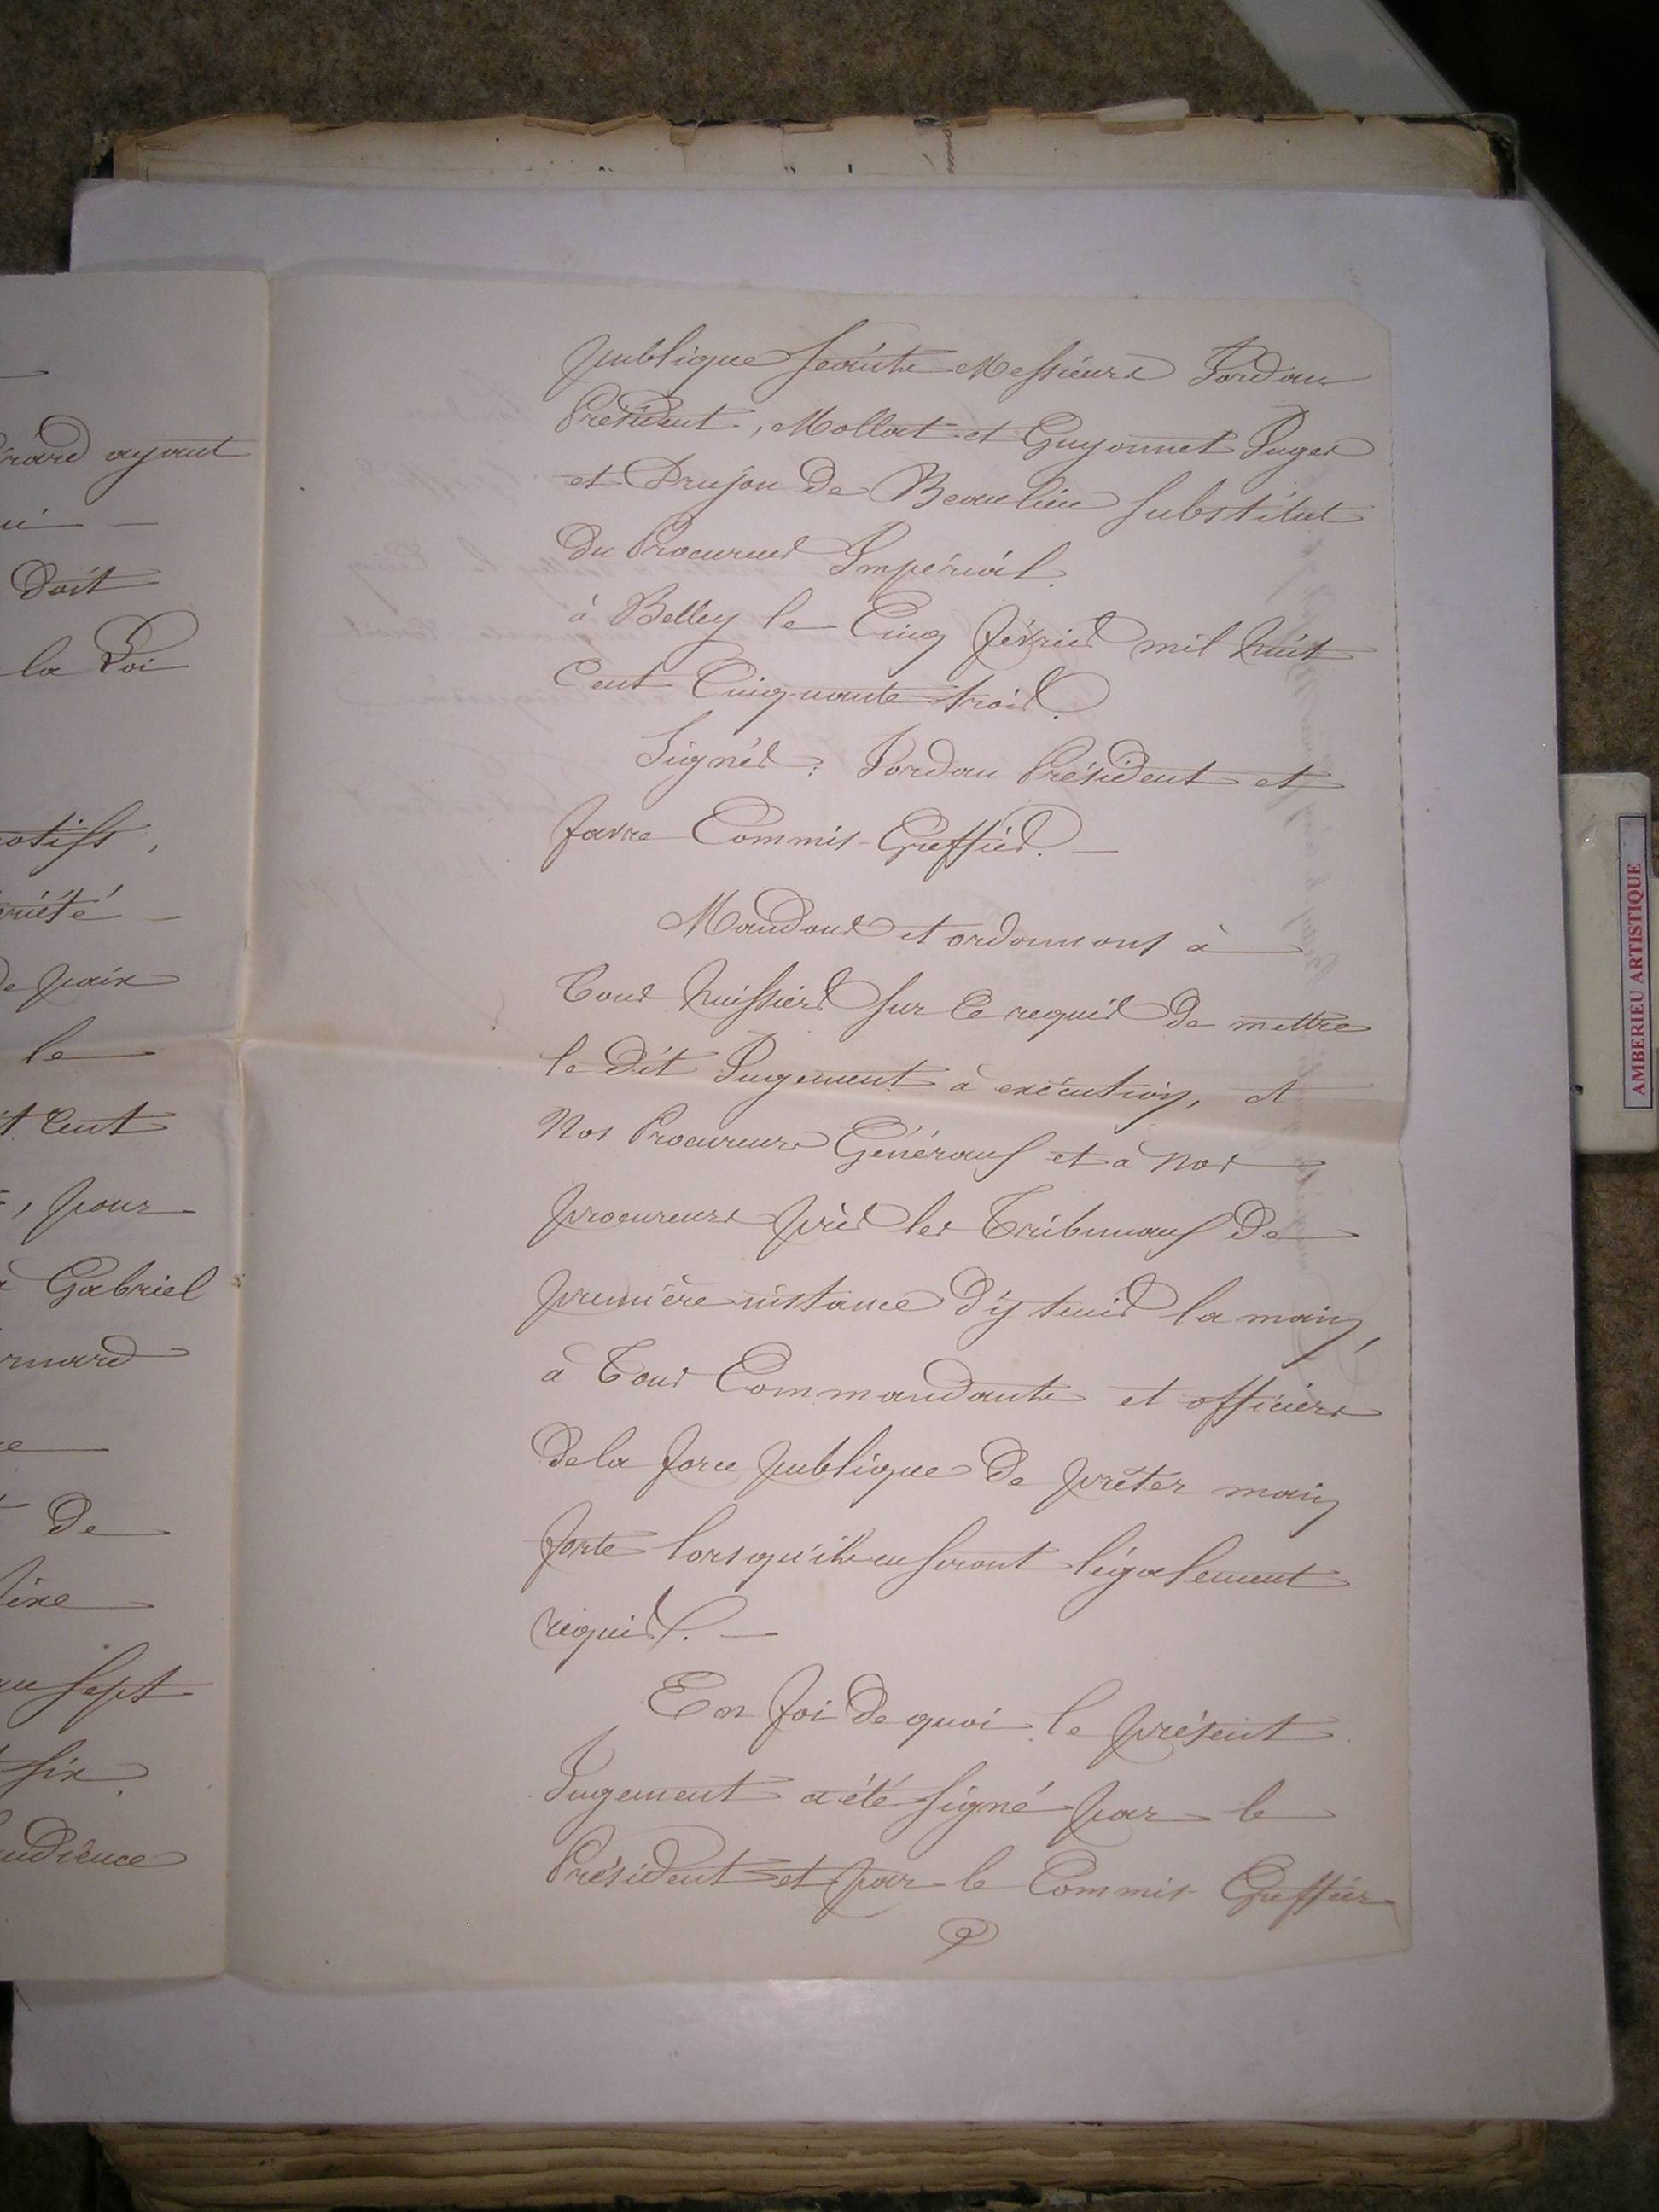 érard ayant
Doit
la Loi
motifs,
de paix
le
cent
, pour
à Gabriel
De
sept
six
audience
publique séante Messieurs Jordan
Président, Mollat et Guyonnet Juges
et Drujon De Beaulieu Substitut
Du Procureur Impérial.
à Belley le Cinq février mil huit
Cent Cinquante trois.
Signés : Jordan Président et
favre Commis-Greffier. —
Mandons et ordonnons à
Tous huissiers sur ce requis De mettre
le Dit Jugement à exécution, et
Nos Procureurs Généraux et à nos
procureurs près les Tribunaux De
première instance D'y tenir la main,
à Tous Commandants et officiers
De la force publique De prêter main
forte lorsqu'ils en seront légalement
requis. —
En foi De quoi le présent
Jugement a été signé par le
Président et par le Commis-Greffier
AMBERIEU ARTISTIQUE